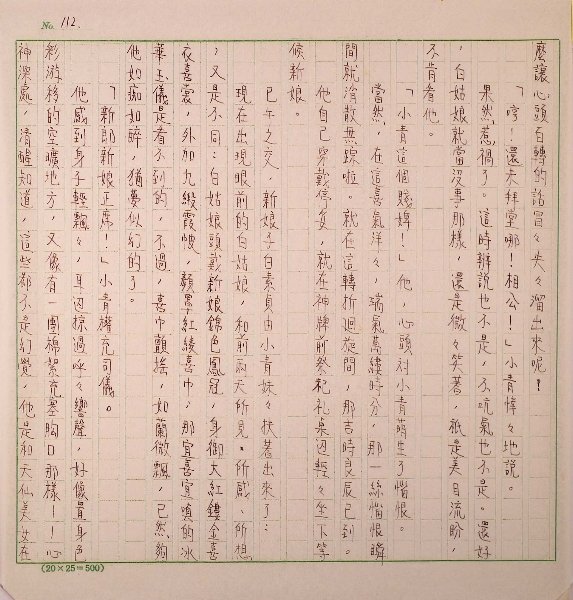 No. 112.
麼讓心頭百轉的話冒冒失失溜出來呢！
「哼！還未拜堂哪！相公！」小青悻々地說。
果然，惹禍了。這時辯說也不是，不吭氣也不是。還好
，白姑娘就當沒事那樣，還是微々笑著，祇是美目流盼，
不肯看他。
「小青這個賤婢！」他，心頭對小青萌生了惱恨。
當然，在這喜氣洋々，瑞氣萬縷時分，那一絲惱恨瞬
間就消散無踪啦。就在這轉折迴旋間，那吉時良辰已到。
他自己穿戴停妥，就在神牌前祭祀礼桌边輕々坐下等
候新娘。
巳午之交，新娘子白素貞由小青妹々扶著出來了：
現在出現眼前的白姑娘，和前兩天所見、所感、所想
，又是不同：白姑娘頭戴新娘錦色鳳冠，身御大紅鏤金喜
衣喜裳，外加九緞霞帔，顏罩紅綾喜巾；那宜喜宜嗔的冰
華玉儀是看不到的，不過，喜巾顫搖，如蘭微飄，已然夠
他如痴如醉，猶夢似幻的了。
「新郎新娘正席！」小青權充司儀。
他感到身子輕飄々，耳边掠過呼々響聲，好像置身色
彩游移的空曠地方，又像有一團棉絮充塞胸口那樣！！心
神深處，清醒知道，這些都不是幻覺，他是和天仙美女在
(20×25=500)